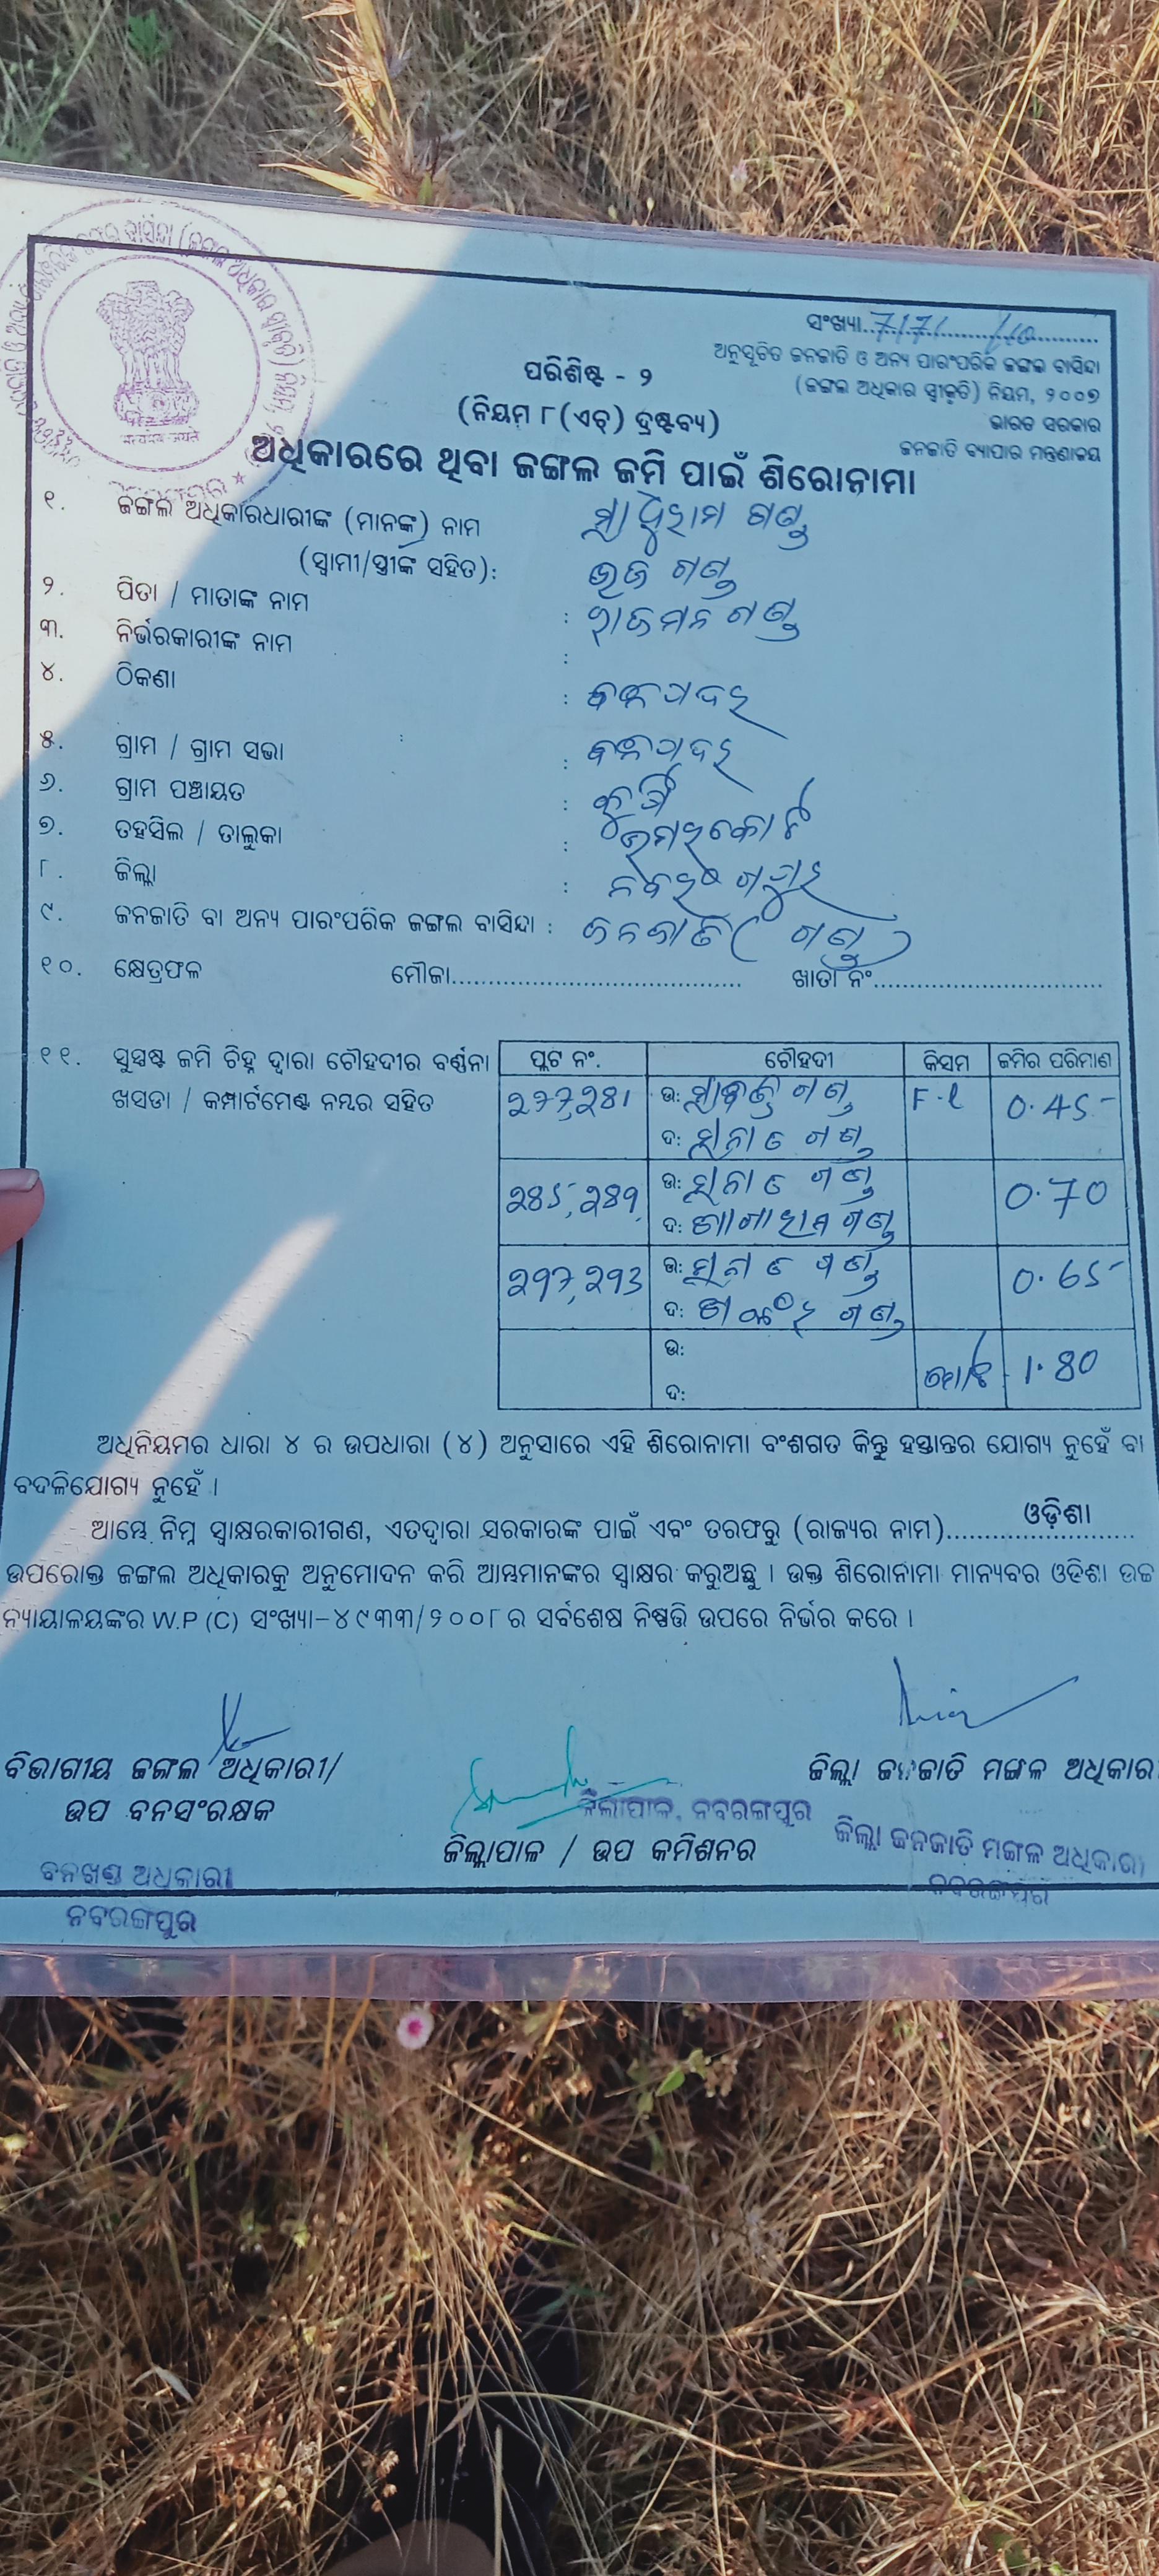 ସଂଖ୍ୟା..7171/10
ଅନୁସୂଚିତ ଜନଜାତି ଓ ଅନ୍ୟ ପାରଂପରିକ ଜଙ୍ଗଲ ବାସିନ୍ଦା
(ଜଙ୍ଗଲ ଅଧିକାର ସ୍ୱୀକୃତି) ନିୟମ, ୨୦୦୭
ଭାରତ ସରକାର
ଜନଜାତି ବ୍ୟାପାର ମନ୍ତ୍ରଣାଳୟ
ପରିଶିଷ୍ଟ - ୨
(ନିୟମ ୮(ଏଚ୍) ଦ୍ରଷ୍ଟବ୍ୟ)
ଅଧିକାରରେ ଥିବା ଜଙ୍ଗଲ ଜମି ପାଇଁ ଶିରୋନାମା
୧. ଜଙ୍ଗଲ ଅଧିକାରଧାରୀଙ୍କ (ମାନଙ୍କ) ନାମ ଗଣ୍ଡ
(ସ୍ୱାମୀ/ସ୍ତ୍ରୀଙ୍କ ସହିତ): ଗଣ୍ଡ
୨. ପିତା / ମାତାଙ୍କ ନାମ : ରାଜମନ ଗଣ୍ଡ
୩. ନିର୍ଭରକାରୀଙ୍କ ନାମ :
୪. ଠିକଣା :
୫. ଗ୍ରାମ / ଗ୍ରାମ ସଭା :
୬. ଗ୍ରାମ ପଞ୍ଚାୟତ :
୭. ତହସିଲ / ତାଲୁକା : ଉମରକୋଟ
୮. ଜିଲ୍ଲା : ନବରଙ୍ଗପୁର
୯. ଜନଜାତି ବା ଅନ୍ୟ ପାରଂପରିକ ଜଙ୍ଗଲ ବାସିନ୍ଦା : ଜନଜାତି (ଗଣ୍ଡ)
୧୦. କ୍ଷେତ୍ରଫଳ ମୌଜା........ ଖାତା ନଂ........
୧୧. ସୁସ୍ପଷ୍ଟ ଜମି ଚିହ୍ନ ଦ୍ୱାରା ଚୌହଦୀର ବର୍ଣ୍ଣନା
ଖସଡା / କମ୍ପାର୍ଟମେଣ୍ଟ ନମ୍ବର ସହିତ
ପ୍ଲଟ ନଂ. ଚୌହଦୀ କିସମ ଜମିର ପରିମାଣ
277,281 ଉ: ଗଣ୍ଡ F.l 0.45
ଦ: ଗଣ୍ଡ
285,289, ଉ: ଗଣ୍ଡ 0.70
ଦ: ଗଣ୍ଡ
297,293 ଉ: ଗଣ୍ଡ 0.65
ଦ: ଗଣ୍ଡ
ଉ: ମୋଟ 1.80
ଦ:
ଅଧିନିୟମର ଧାରା ୪ ର ଉପଧାରା (୪) ଅନୁସାରେ ଏହି ଶିରୋନାମା ବଂଶଗତ କିନ୍ତୁ ହସ୍ତାନ୍ତର ଯୋଗ୍ୟ ନୁହେଁ ବା
ବଦଳିଯୋଗ୍ୟ ନୁହେଁ ।
ଆମ୍ଭେ ନିମ୍ନ ସ୍ୱାକ୍ଷରକାରୀଗଣ, ଏତଦ୍ୱାରା ସରକାରଙ୍କ ପାଇଁ ଏବଂ ତରଫରୁ (ରାଜ୍ୟର ନାମ)....ଓଡ଼ିଶା....
ଉପରୋକ୍ତ ଜଙ୍ଗଲ ଅଧିକାରକୁ ଅନୁମୋଦନ କରି ଆମ୍ଭମାନଙ୍କର ସ୍ୱାକ୍ଷର କରୁଅଛୁ । ଉକ୍ତ ଶିରୋନାମା ମାନ୍ୟବର ଓଡିଶା ଉଚ୍ଚ
ନ୍ୟାୟାଳୟଙ୍କର W.P (C) ସଂଖ୍ୟା-୪୯୩୩/୨୦୦୮ ର ସର୍ବଶେଷ ନିଷ୍ପତ୍ତି ଉପରେ ନିର୍ଭର କରେ ।
ବିଭାଗୀୟ ଜଙ୍ଗଲ ଅଧିକାରୀ/ ଜିଲ୍ଲା ଜନଜାତି ମଙ୍ଗଳ ଅଧିକାରୀ
ଉପ ବନସଂରକ୍ଷକ ଜିଲ୍ଲାପାଳ, ନବରଙ୍ଗପୁର
ଜିଲ୍ଲାପାଳ / ଉପ କମିଶନର ଜିଲ୍ଲା ଜନଜାତି ମଙ୍ଗଳ ଅଧିକାରୀ
ବନଖଣ୍ଡ ଅଧିକାରୀ ନବରଙ୍ଗପୁର
ନବରଙ୍ଗପୁର